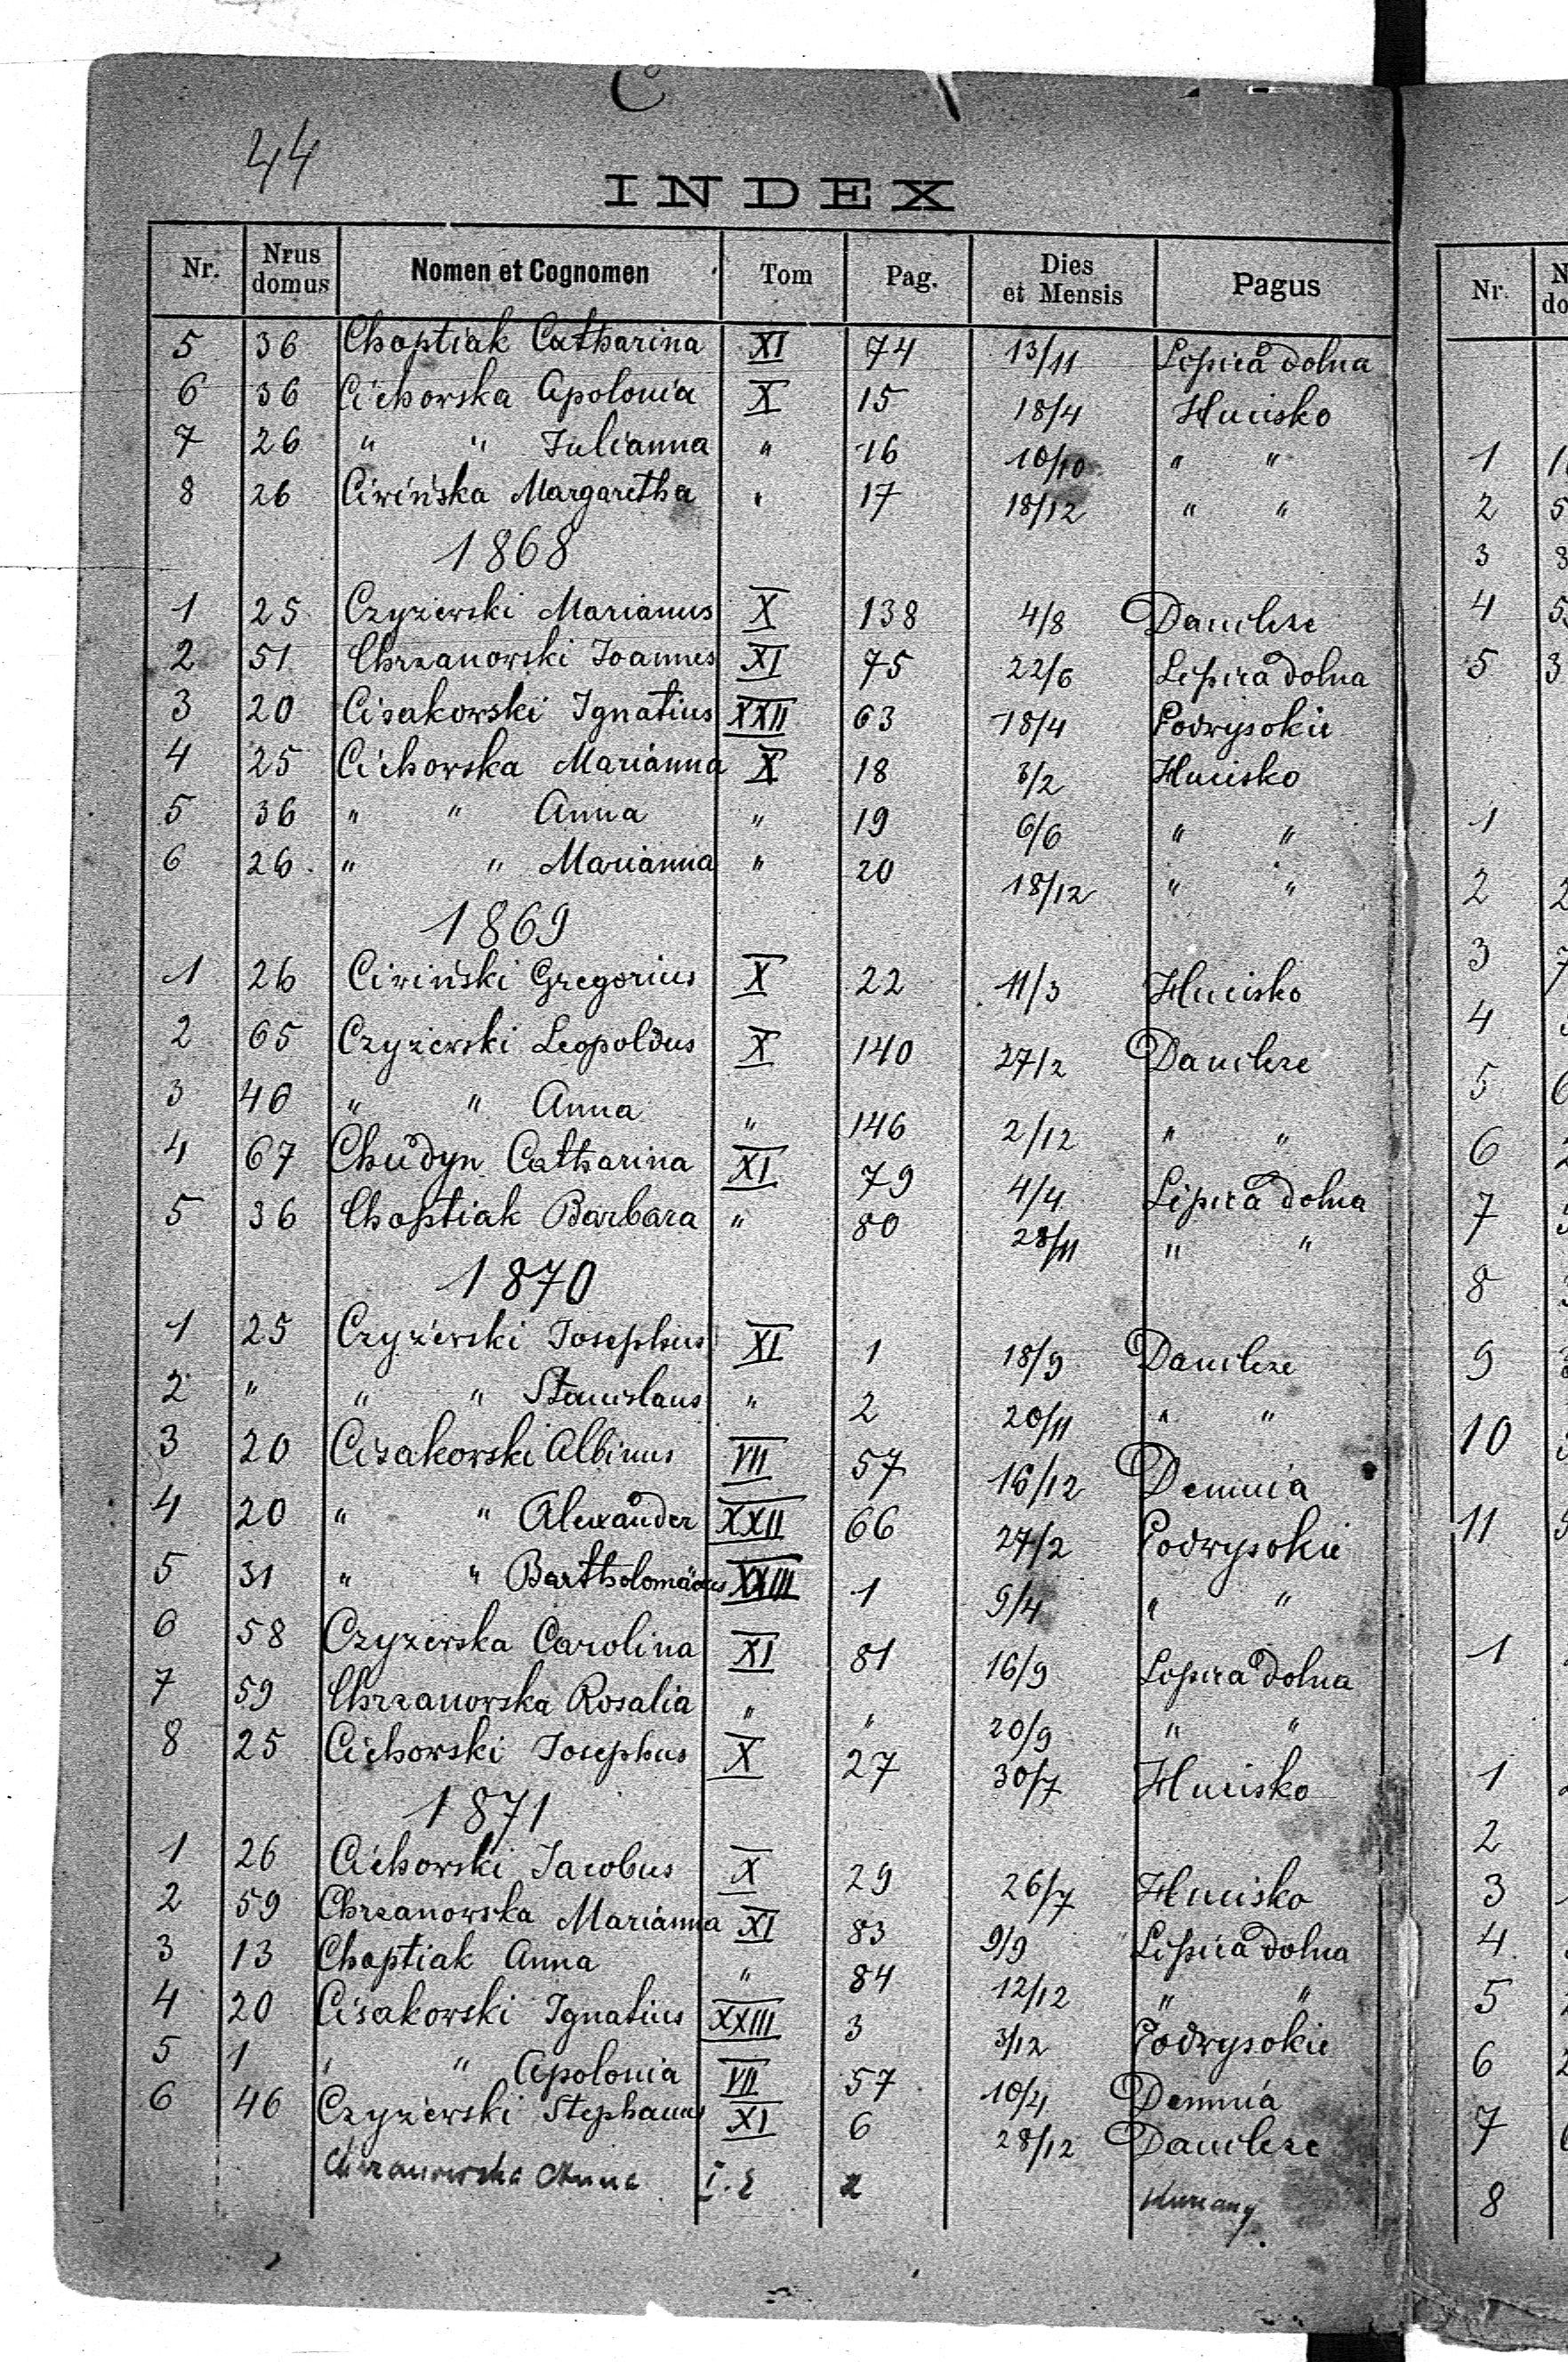 C
44
INDEX
Nr. Nrus domus Nomen et Cognomen Tom Pag. Dies et Mensis Pagus
5 36 Choptiak Catharina XI 74 13/11 Lipica dolna
6 36 Cichowska Apolonia X 15 18/4 Hucisko
7 26 " " Julianna " 16 10/10 " "
8 26 Ciwińska Margaretha " 17 18/12 " "
1868
1 25 Czyżewski Marianus X 138 4/8 Danilcze
2 51 Chrzanowski Joannes XI 75 22/6 Lipica dolna
3 20 Cisakowski Ignatius XXII 63 18/4 Podwysokie
4 25 Cichowska Marianna X 18 3/2 Hucisko
5 36 " " Anna " 19 6/6 " "
6 26 " " Marianna " 20 18/12 " "
1869
1 26 Ciwiński Gregorius X 22 11/3 Hucisko
2 65 Czyżewski Leopoldus X 140 27/2 Danilcze
3 46 " " Anna " 146 2/12 " "
4 67 Chudyn Catharina XI 79 4/4 Lipica dolna
5 36 Choptiak Barbara " 80 28/11 " "
1870
1 25 Czyżewski Josephus XI 1 18/9 Danilcze
2 " " " Stanislaus " 2 20/11 " "
3 20 Cisakowski Albinus VII 57 16/12 Demnia
4 20 " " Alexander XXII 66 27/2 Podwysokie
5 31 " " Bartholomäus XXIII 1 9/4 " "
6 58 Czyżewska Carolina XI 81 16/9 Lipica dolna
7 59 Chrzanowska Rosalia " " 20/9 " "
8 25 Cichowski Josephus X 27 30/7 Hucisko
1871
1 26 Cichowski Jacobus X 29 26/7 Hucisko
2 59 Chrzanowska Marianna XI 83 9/9 Lipica dolna
3 13 Choptiak Anna " 84 12/12 " "
4 20 Cisakowski Ignatius XXIII 3 3/12 Podwysokie
5 1 " " Apolonia VII 57 10/4 Demnia
6 46 Czyżewski Stephanus XI 6 28/12 Danilcze
Chrzanowska Anna 2 Kuriany
Nr.
1
2
3
4
5
1
2
3
4
5
6
7
8
9
10
11
1
1
2
3
4
5
6
7
8